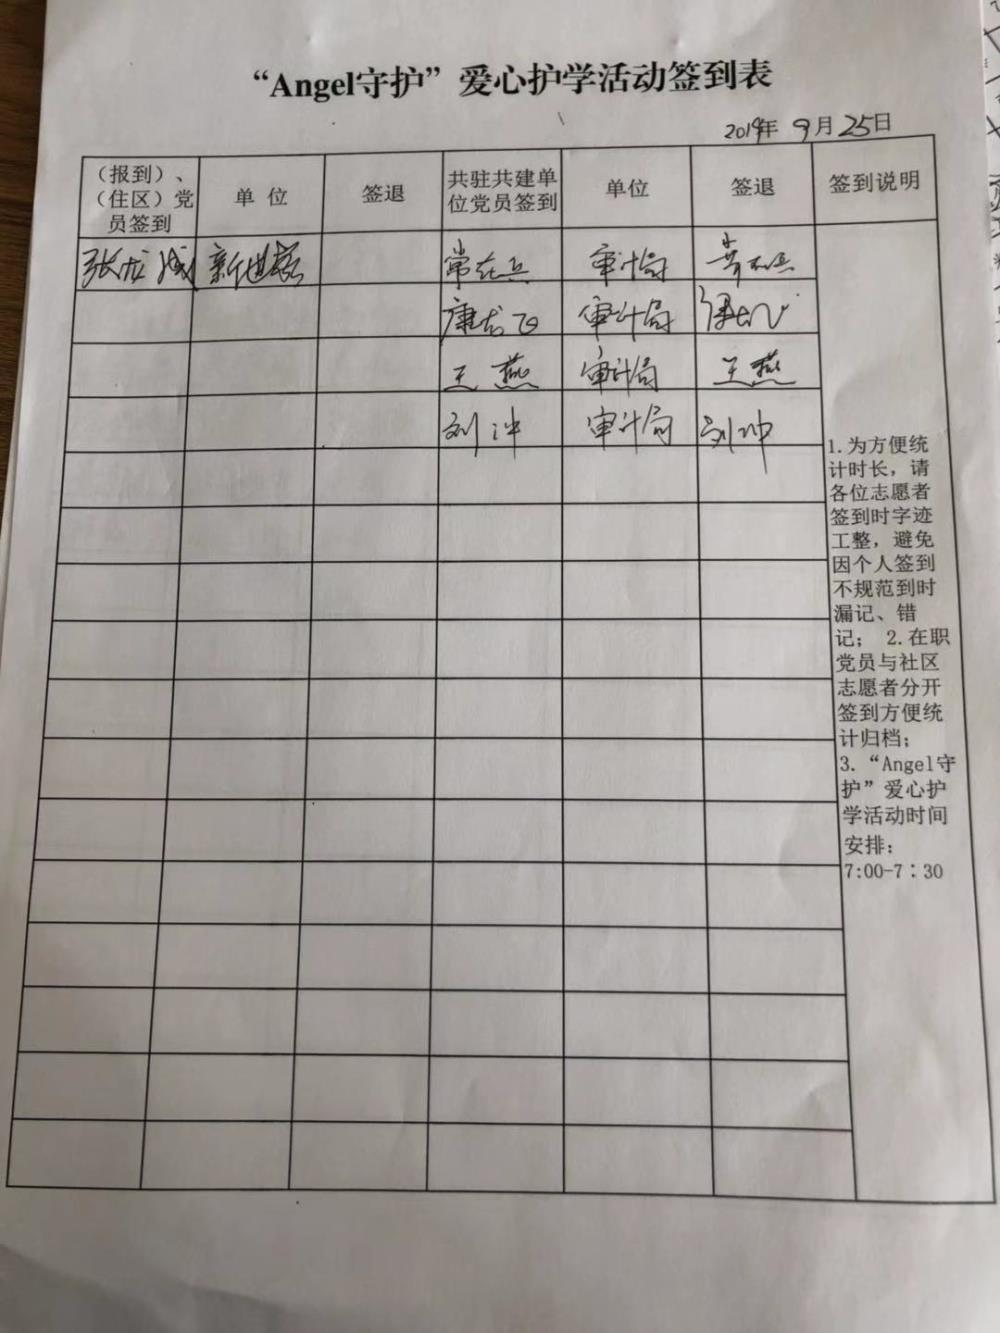 “Angel守护”爱心护学活动签到表
2019年 9月25日
（报到）、
（住区）党
员签到
单 位
签退
共驻共建单
位党员签到
单位
签退
签到说明
张龙成 新世纪
常在兵 审计局
康龙飞 审计局
王燕 审计局 王燕
刘冲 审计局 刘冲
1.为方便统
计时长，请
各位志愿者
签到时字迹
工整，避免
因个人签到
不规范到时
漏记、错
记； 2.在职
党员与社区
志愿者分开
签到方便统
计归档；
3.“Angel守
护”爱心护
学活动时间
安排：
7:00-7：30